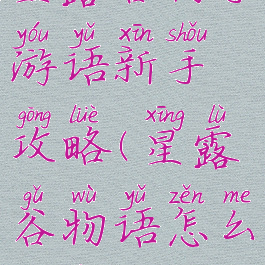 yóu yǔ xīn shǒu
游语新手
gōng lüè xīng lù
攻略(星露
gǔ wù yǔ zěn me
谷物语怎么